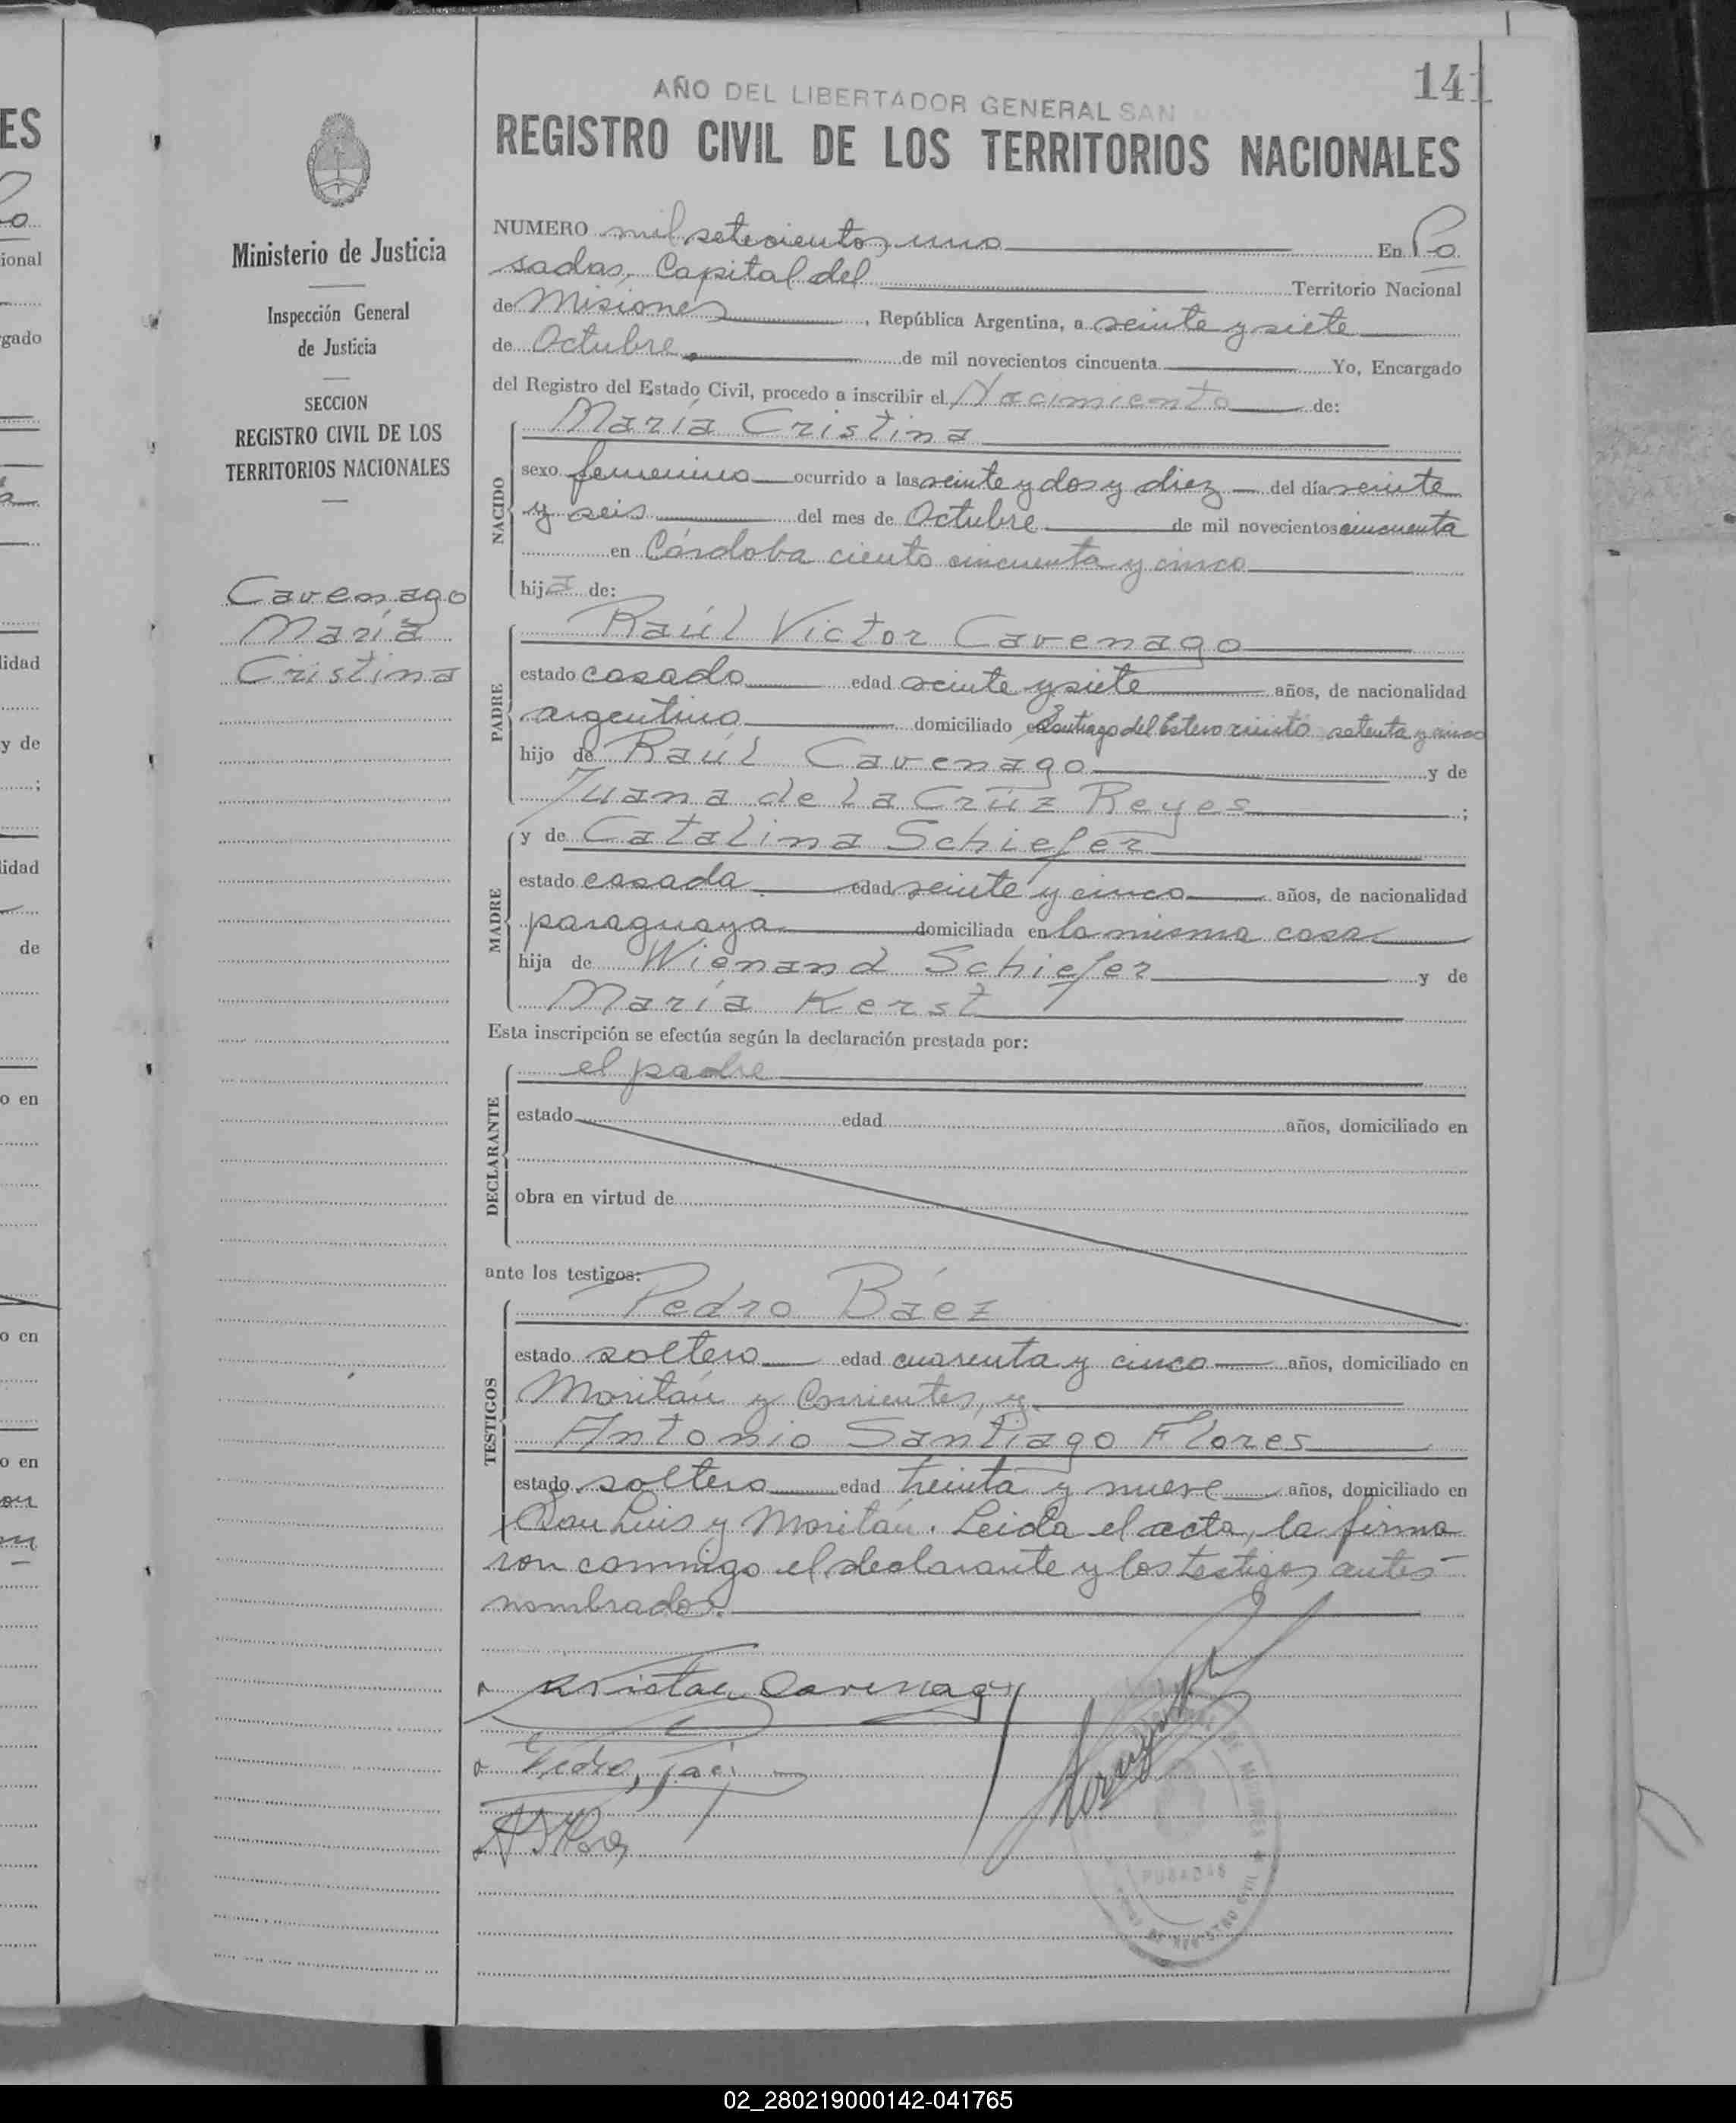 141
AÑO DEL LIBERTADOR GENERAL SAN
REGISTRO CIVIL DE LOS TERRITORIOS NACIONALES
Ministerio de Justicia
Inspección General
de Justicia
SECCION
REGISTRO CIVIL DE LOS
TERRITORIOS NACIONALES
Cavenago
María
Cristina
NUMERO mil setecientos uno En Po
sadas, Capital del Territorio Nacional
de Misiones, República Argentina, a veinte y siete
de Octubre de mil novecientos cincuenta Yo, Encargado
del Registro del Estado Civil, procedo a inscribir el Nacimiento de:
NACIDO
María Cristina
sexo femenino ocurrido a las veinte y dos y diez del día veinte
y seis del mes de Octubre de mil novecientos cincuenta
en Córdoba ciento cincuenta y cinco
hija de:
PADRE
Raúl Victor Cavenago
estado casado edad veinte y siete años, de nacionalidad
argentino domiciliado en Santiago del Estero ciento setenta y cinco
hijo de Raúl Cavenago y de
Juana de la Cruz Reyes;
MADRE
y de Catalina Schiefer
estado casada edad veinte y cinco años, de nacionalidad
paraguaya domiciliada en la misma casa
hija de Wienand Schiefer y de
María Kerst
Esta inscripción se efectúa según la declaración prestada por:
DECLARANTE
el padre
estado edad años, domiciliado en
obra en virtud de
ante los testigos:
TESTIGOS
Pedro Báez
estado soltero edad cuarenta y cinco años, domiciliado en
Moritán y Corrientes, y
Antonio Santiago Flores
estado soltero edad treinta y nueve años, domiciliado en
San Luis y Moritán. Leida el acta, la firma
ron conmigo el declarante y los testigos antes
nombrados.
Cavenago
Pedro Báez
POSADAS
02_280219000142-041765